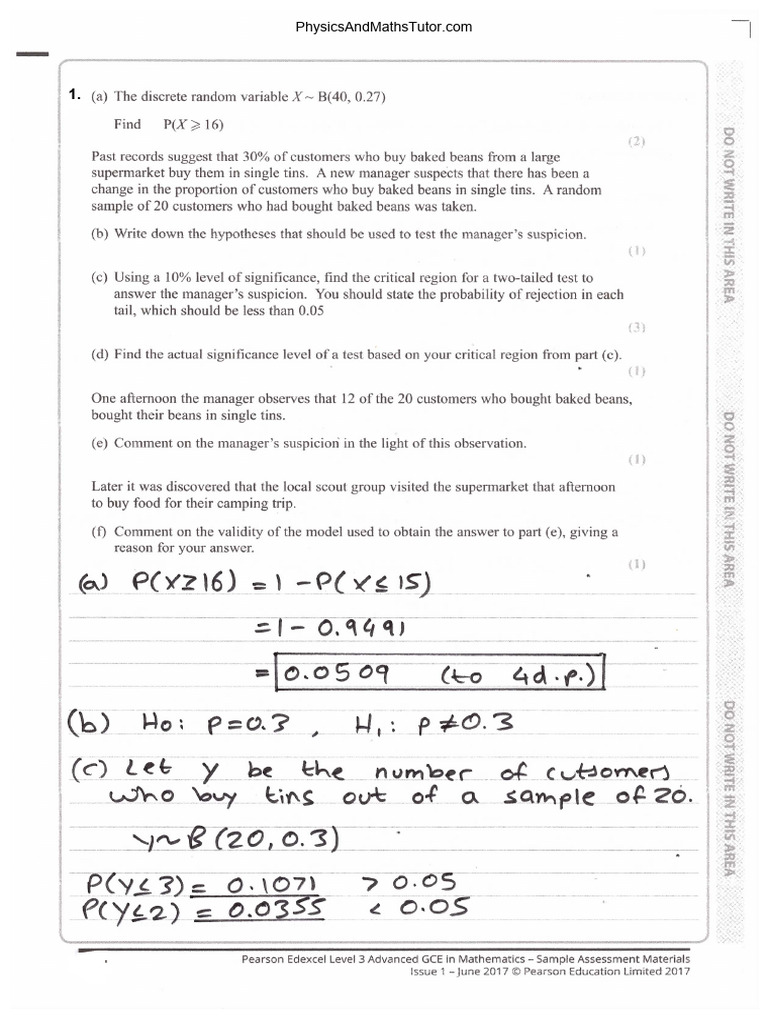 PhysicsAndMathsTutor.com
1. (a) The discrete random variable X ~ B(40, 0.27)
Find P(X ⩾ 16)
(2)
Past records suggest that 30% of customers who buy baked beans from a large
supermarket buy them in single tins. A new manager suspects that there has been a
change in the proportion of customers who buy baked beans in single tins. A random
sample of 20 customers who had bought baked beans was taken.
(b) Write down the hypotheses that should be used to test the manager's suspicion.
(1)
(c) Using a 10% level of significance, find the critical region for a two-tailed test to
answer the manager's suspicion. You should state the probability of rejection in each
tail, which should be less than 0.05
(3)
(d) Find the actual significance level of a test based on your critical region from part (c).
(1)
One afternoon the manager observes that 12 of the 20 customers who bought baked beans,
bought their beans in single tins.
(e) Comment on the manager's suspicion in the light of this observation.
(1)
Later it was discovered that the local scout group visited the supermarket that afternoon
to buy food for their camping trip.
(f) Comment on the validity of the model used to obtain the answer to part (e), giving a
reason for your answer.
(1)
(a) P(X≥16) = 1 - P(X ≤ 15)
= 1 - 0.9491
= 0.0509 (to 4d.p.)
(b) Ho: p=0.3 , H₁: p≠0.3
(c) Let y be the number of cutsomers
who buy tins out of a sample of 20.
y~B(20,0.3)
P(Y≤3) = 0.1071 > 0.05
P(Y≤2) = 0.0355 < 0.05
DO NOT WRITE IN THIS AREA
DO NOT WRITE IN THIS AREA
DO NOT WRITE IN THIS AREA
Pearson Edexcel Level 3 Advanced GCE in Mathematics – Sample Assessment Materials
Issue 1 – June 2017 © Pearson Education Limited 2017